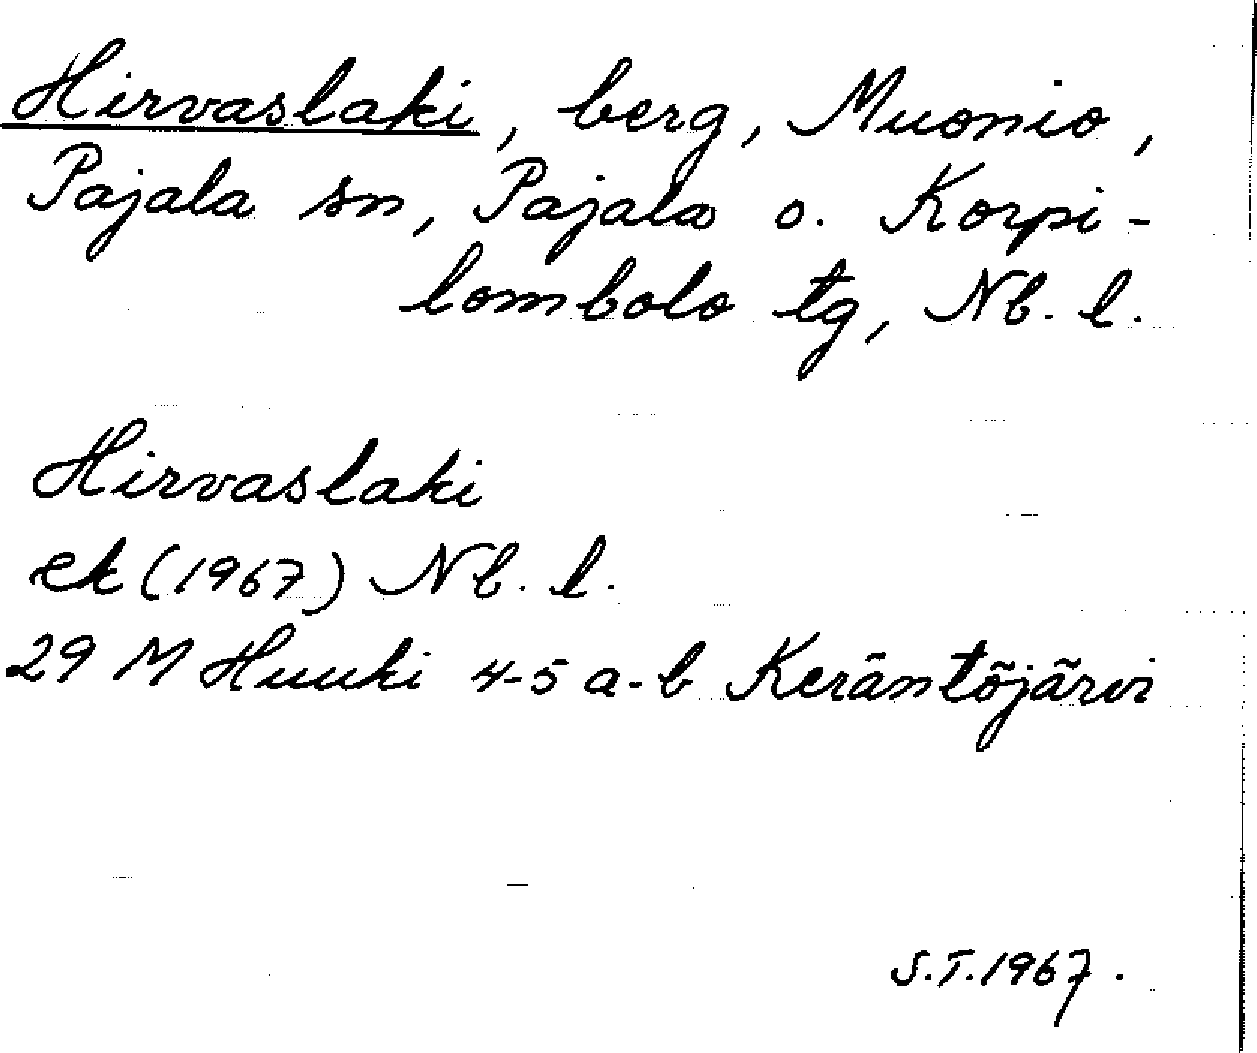 Hirvaslaki, berg, Muonio,
Pajala sn, Pajala o. Korpi-
lombolo tg, Nb. l.
Hirvaslaki
ek (1967) Nb. l.
29 M Huuki 4-5 a-b Keräntöjärvi
S.T. 1967.